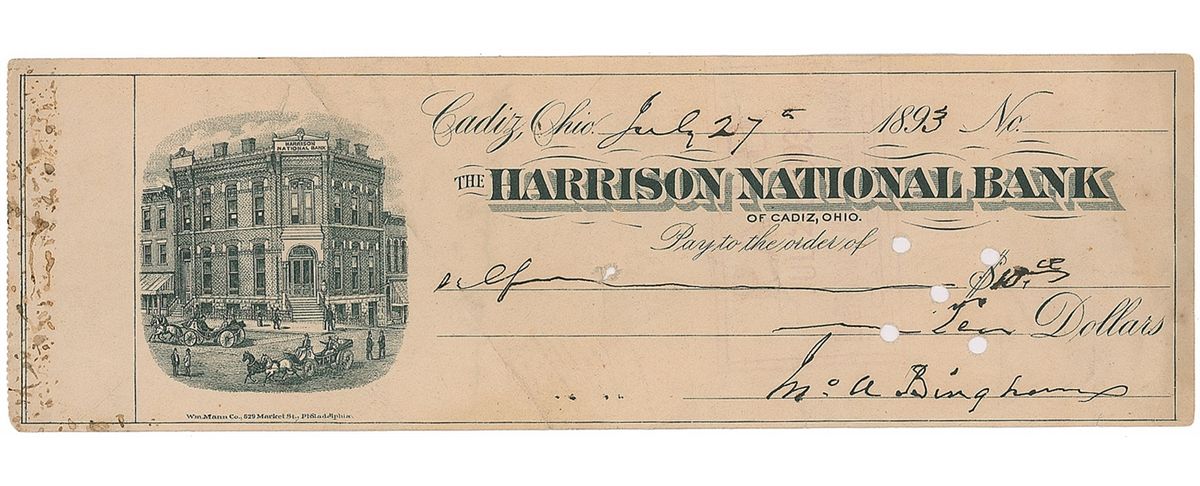 Cadiz, Ohio. July 27th 1893 No.
HARRISON
NATIONAL BANK
THE HARRISON NATIONAL BANK
OF CADIZ, OHIO.
Pay to the order of
self $10.00
Ten Dollars
Jno A Bingham
Wm. Mann Co., 529 Market St., Philadelphia.